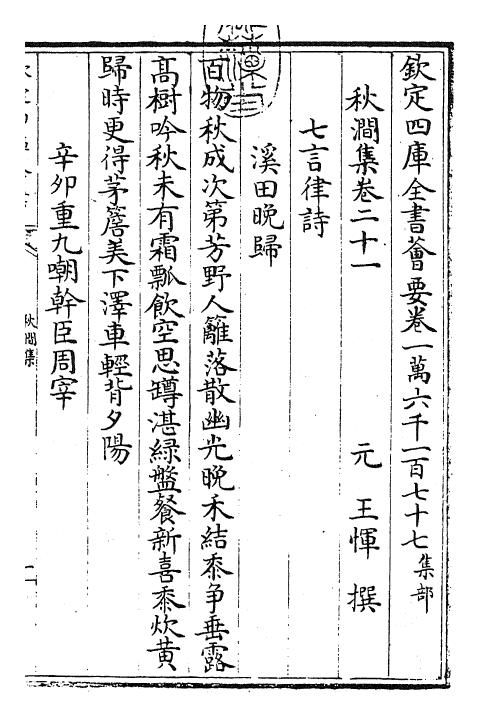 欽定四庫全書薈要卷一萬六千一百七十七集部
秋澗集卷二十一
元 王惲 撰
七言律詩
溪田晚歸
百物秋成次第芳野人籬落散幽光晚禾結黍争垂露
高樹吟秋未有霜瓢飲空思罇湛綠盤餐新喜黍炊黄
歸時更得茅簷美下澤車輕背夕陽
辛卯重九嘲幹臣周宰
秋澗集